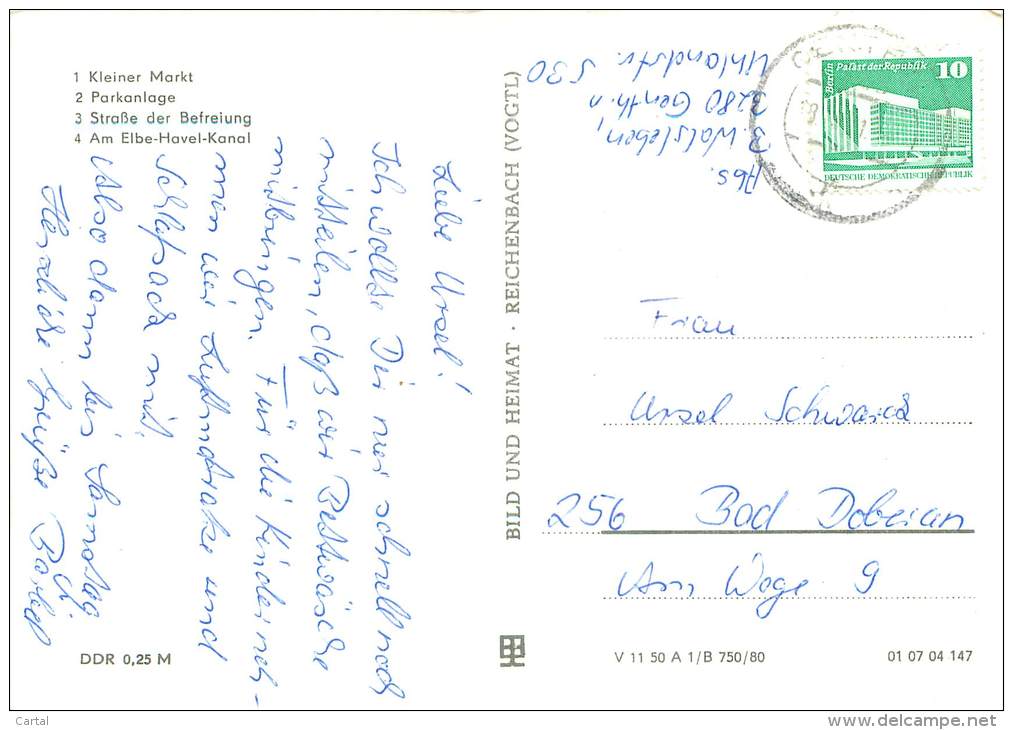 1 Kleiner Markt
2 Parkanlage
3 Straße der Befreiung
4 Am Elbe-Havel-Kanal
Liebe Ursel!
Ich wollte Dir nur schnell noch
mitteilen, daß wir Bettwäsche
mitbringen. Für die Kinder neh-
men wir Luftmatratze und
Schlafsack mit.
Also dann bis Samstag
Herzliche Grüße
DDR 0,25 M
BILD UND HEIMAT · REICHENBACH (VOGTL)
Abs.
Walsleben,
3280 Genthin
Uhlandstr. 530
Berlin Palast der Republik 10
DEUTSCHE DEMOKRATISCHE REPUBLIK
Frau
Ursel Schwarck
256 Bad Doberan
Am Wege 9
V 11 50 A 1/B 750/80
01 07 04 147
Cartal
delcampe.net